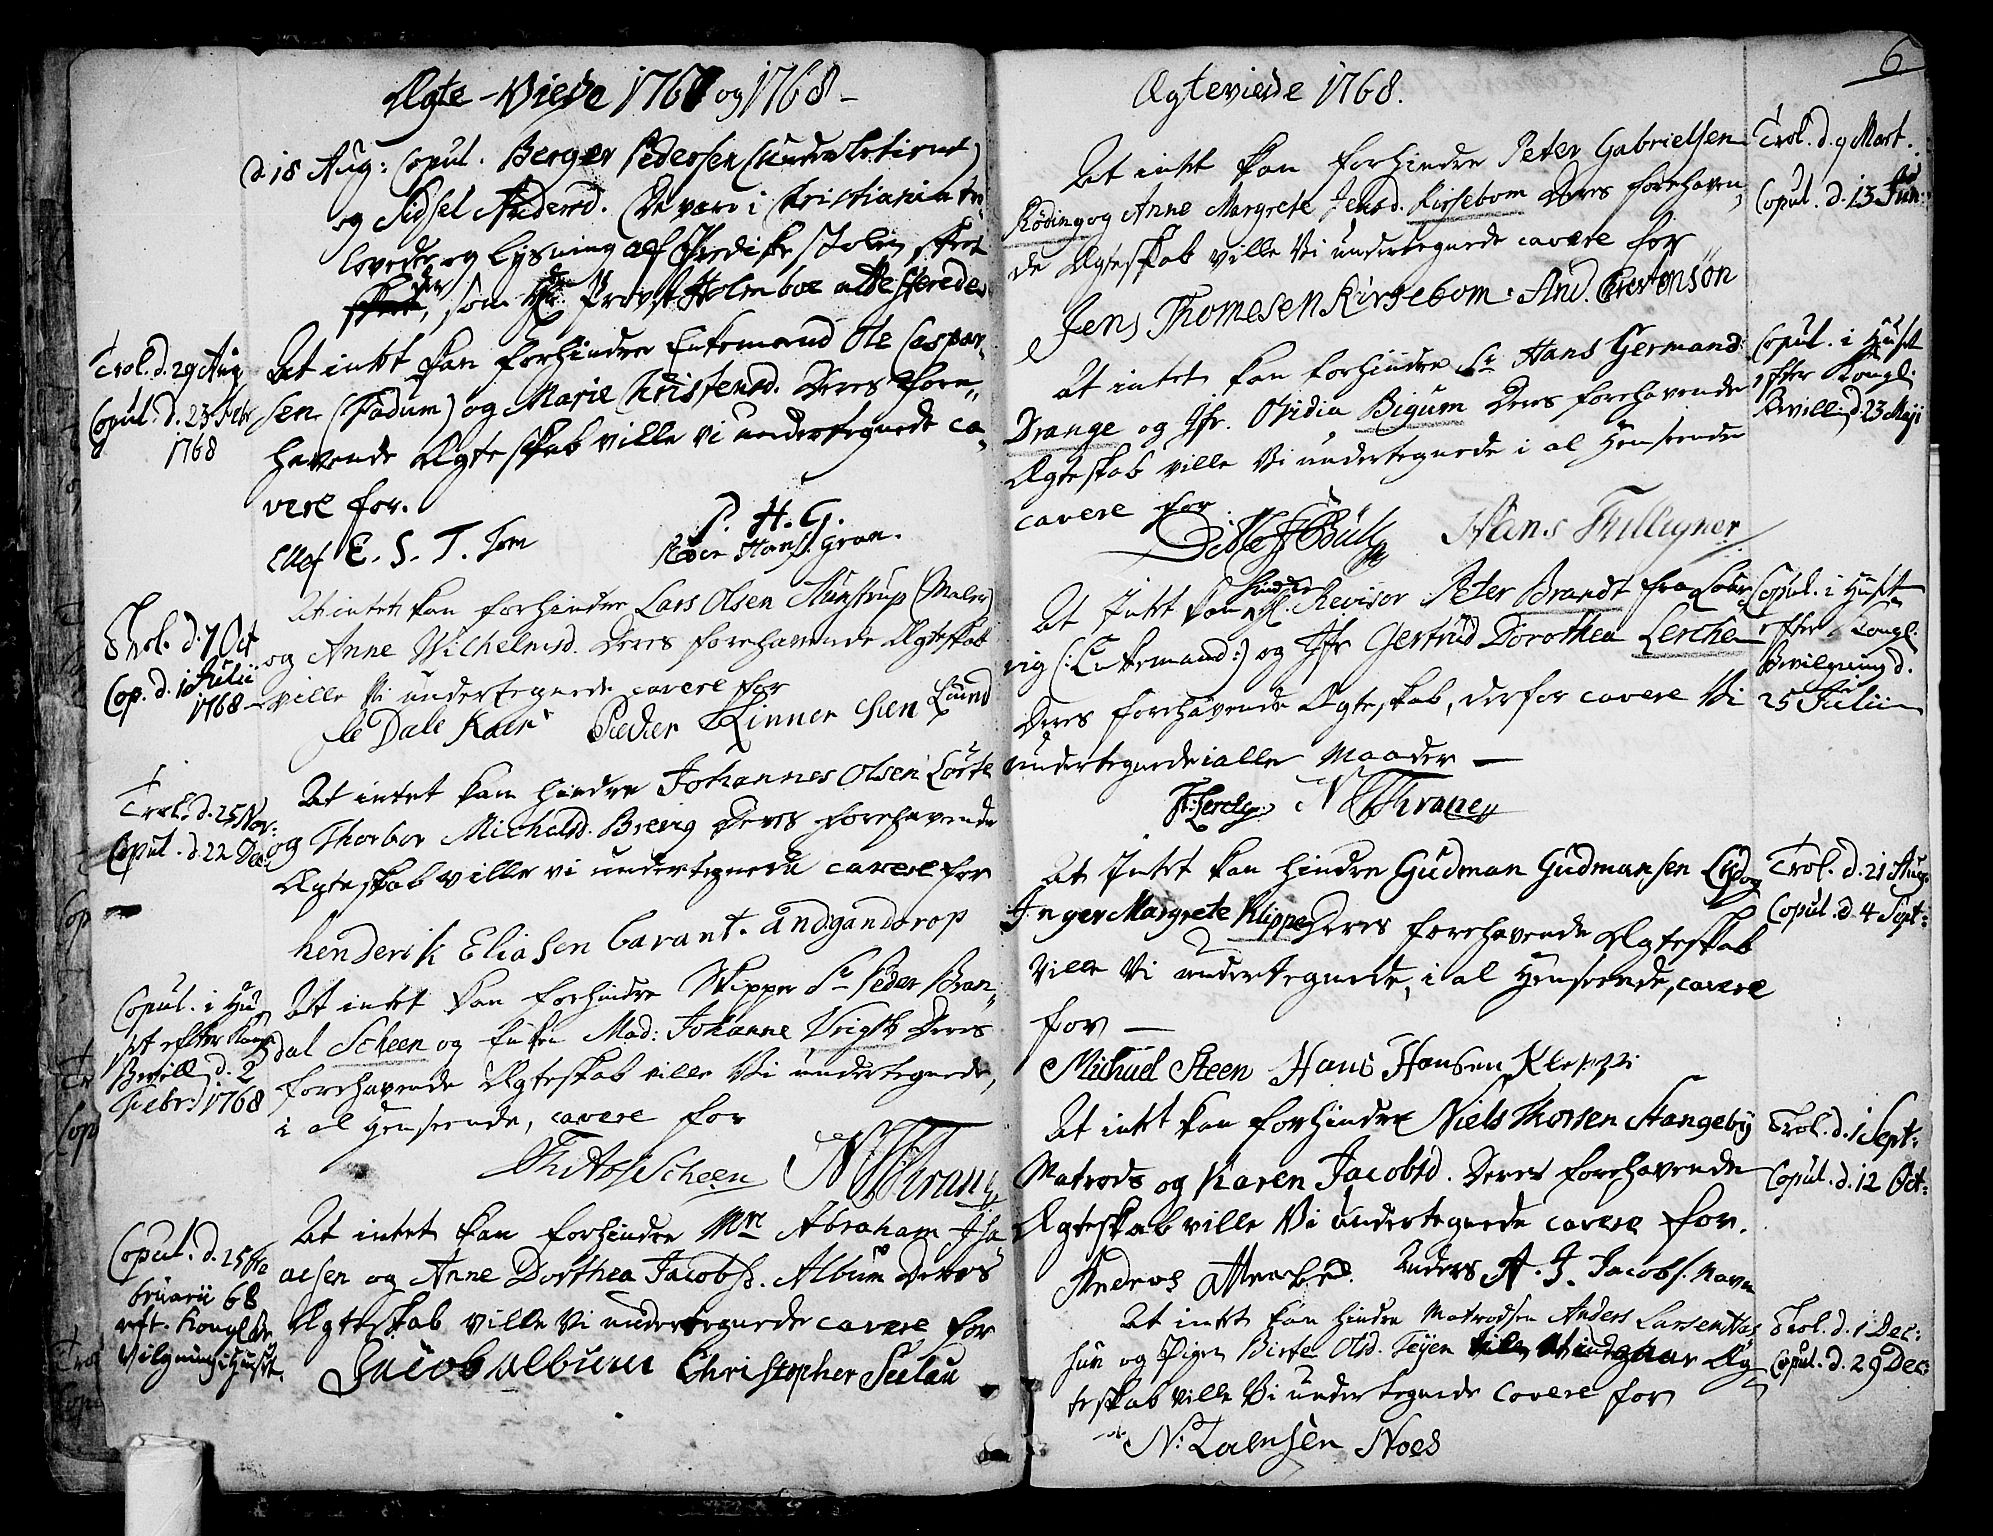 Ægte-Viede 1767 og 1768-
d. 18 Aug: Copul. Berger Pedersen (Underbetient)
og Sidsel Andersd. De vare i Christiania tro-
lovede og lysning af Prædikestolen skeet
der, som Hr. Provst Holmboe attesterede.
Trol. d. 29 Aug
Copul. d. 23 Febr
1768
At intet kan forhindre Enkemand Ole Caspar-
sen (Fadum) og Marie Christensd. Deres fore-
havende Ægteskab ville vi undertegnede ca-
vere for.
Ellef E. S. T. Tom
P. H. G.
Peder Hans. Gran.
Trol. d. 7 Oct
Cop. d. 1 Julii
1768
At intet kan forhindre Lars Olsen Munstrup (Maler)
og Anne Wilhelmsd. Deres forehavende Ægteskab
ville Vi undertegnede cavere for
Ole Dale Kaar Peder Kinner Lund
Trol. d. 25 Nov:
Copul. d. 22 Dec:
At intet kan hindre Johannes Olsen Lorte
og Thorbor Michelsd. Brevig Deres forehavende
Ægteskab ville vi undertegnede cavere for
henderik Eliasen Carant. andgandorop
Copul. i Hu
set efter Kongl
Bevill. d. 2
Febr. 1768
At intet kan forhindre Skipper Sr Peder Bran-
dal Scheen og Enken Mad: Johanne Vrigst Deres
forehavende Ægteskab ville Vi undertegnede,
i al Henseende, cavere for
Scheen N Thrane
Copul. d. 25 Fe
bruarii 68
eft. Kongl Be
vilgning i Huset.
At intet kan forhindre Mr Abraham Isa-
acsen og Anne Dorthea Jacobsd. Album Deres
Ægteskab ville Vi undertegnede cavere for
Jacob album Christopher Seelau
6
Ægteviede 1768.
Trol. d. 9 Mart.
Copul. d. 13 Jun:
At intet kan forhindre Peter Gabrielsen
Röding og Anne Margrete Jensd. Kirsebom Deres forehaven-
de Ægteskab ville Vi undertegnede cavere for
Jens Thomesen Kirsebom. And. Chrestensøn
Copul. i Huset
efter Kongl.
Bevilln. d. 23 Maji
At intet kan forhindre Sr Hans Germand:
Drange og Jfr. Ovidia Bigum Deres forehavende
Ægteskab ville Vi undertegnede i al Henseende
cavere for
Ditlef Bull Hans Fulligner
Copul. i Huset
efter Kongl.
Bevilgning d.
25 Julii
At Intet kan hindre Hr. Revisor Peter Brandt fra Laur-
vig (: Enkemand :) og Jfr Gertrud Dorothea Lerche
Deres forehavende Ægteskab, derfor cavere Vi
undertegnede i alle Maader —
F: Lerche. N Thrane
Trol. d. 21 Aug.
Copul. d. 4 Sept:
At Intet kan hindre Gudman Gudmansen Lyd og
Inger Margrete Klippe Deres forehavende Ægteskab
ville Vi undertegnede, i al Henseende, cavere
for —
Michael Steen Hans Hansen Kleppe
Trol. d. 1 Sept:
Copul. d. 12 Oct:
At intet kan forhindre Niels Thorsen Stangeby
Matrods og Karen Jacobsd. Deres forehavende
Ægteskab ville Vi undertegnede cavere for.
Anders A. J. Jacobs. Navn
Trol. d. 1 Dec:
Copul. d. 29 Dec:
At intet kan hindre Matrodsen Anders Larsen Has
hun og Pigen Birte Olsd. Teyen Æg-
teskab ville Vi undertegnede cavere for
N: Laensen Noes